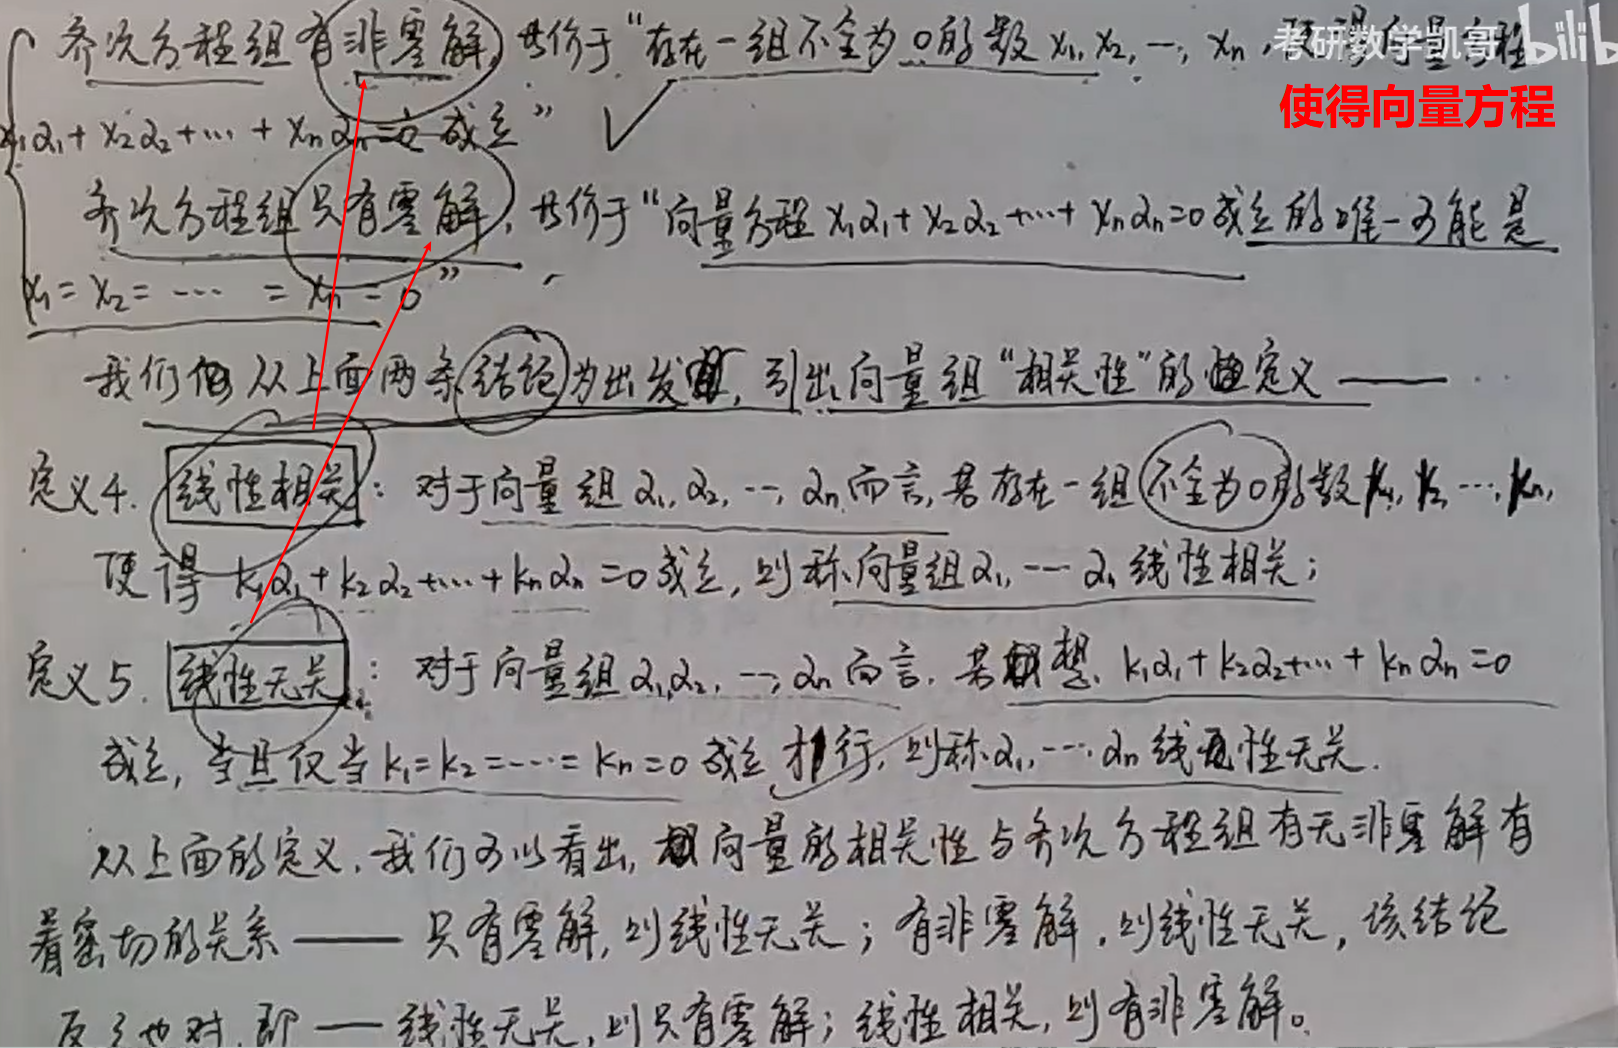 齐次方程组有非零解，等价于“存在一组不全为0的数 x₁, x₂, …, xₙ，使得向量方程
考研数学凯哥 bilib
使得向量方程
x₁α₁+x₂α₂+…+xₙαₙ=0 成立”
齐次方程组只有零解，等价于“向量方程 x₁α₁+x₂α₂+…+xₙαₙ=0 成立的唯一可能是
x₁=x₂=…=xₙ=0”
我们从上面两条结论为出发，引出向量组“相关性”的定义——
定义4. 线性相关：对于向量组α₁,α₂,…,αₙ而言，若存在一组不全为0的数k₁,k₂,…,kₙ,
使得 k₁α₁+k₂α₂+…+kₙαₙ=0成立，则称向量组α₁,…αₙ线性相关；
定义5. 线性无关：对于向量组α₁,α₂,…,αₙ而言，若想 k₁α₁+k₂α₂+…+kₙαₙ=0
成立，当且仅当k₁=k₂=…=kₙ=0成立才行，则称α₁,…αₙ线性无关.
从上面的定义，我们可以看出，向量的相关性与齐次方程组有无非零解有
着密切的关系——只有零解，则线性无关；有非零解，则线性无关，该结论
反了也对，即——线性无关，则只有零解；线性相关，则有非零解。